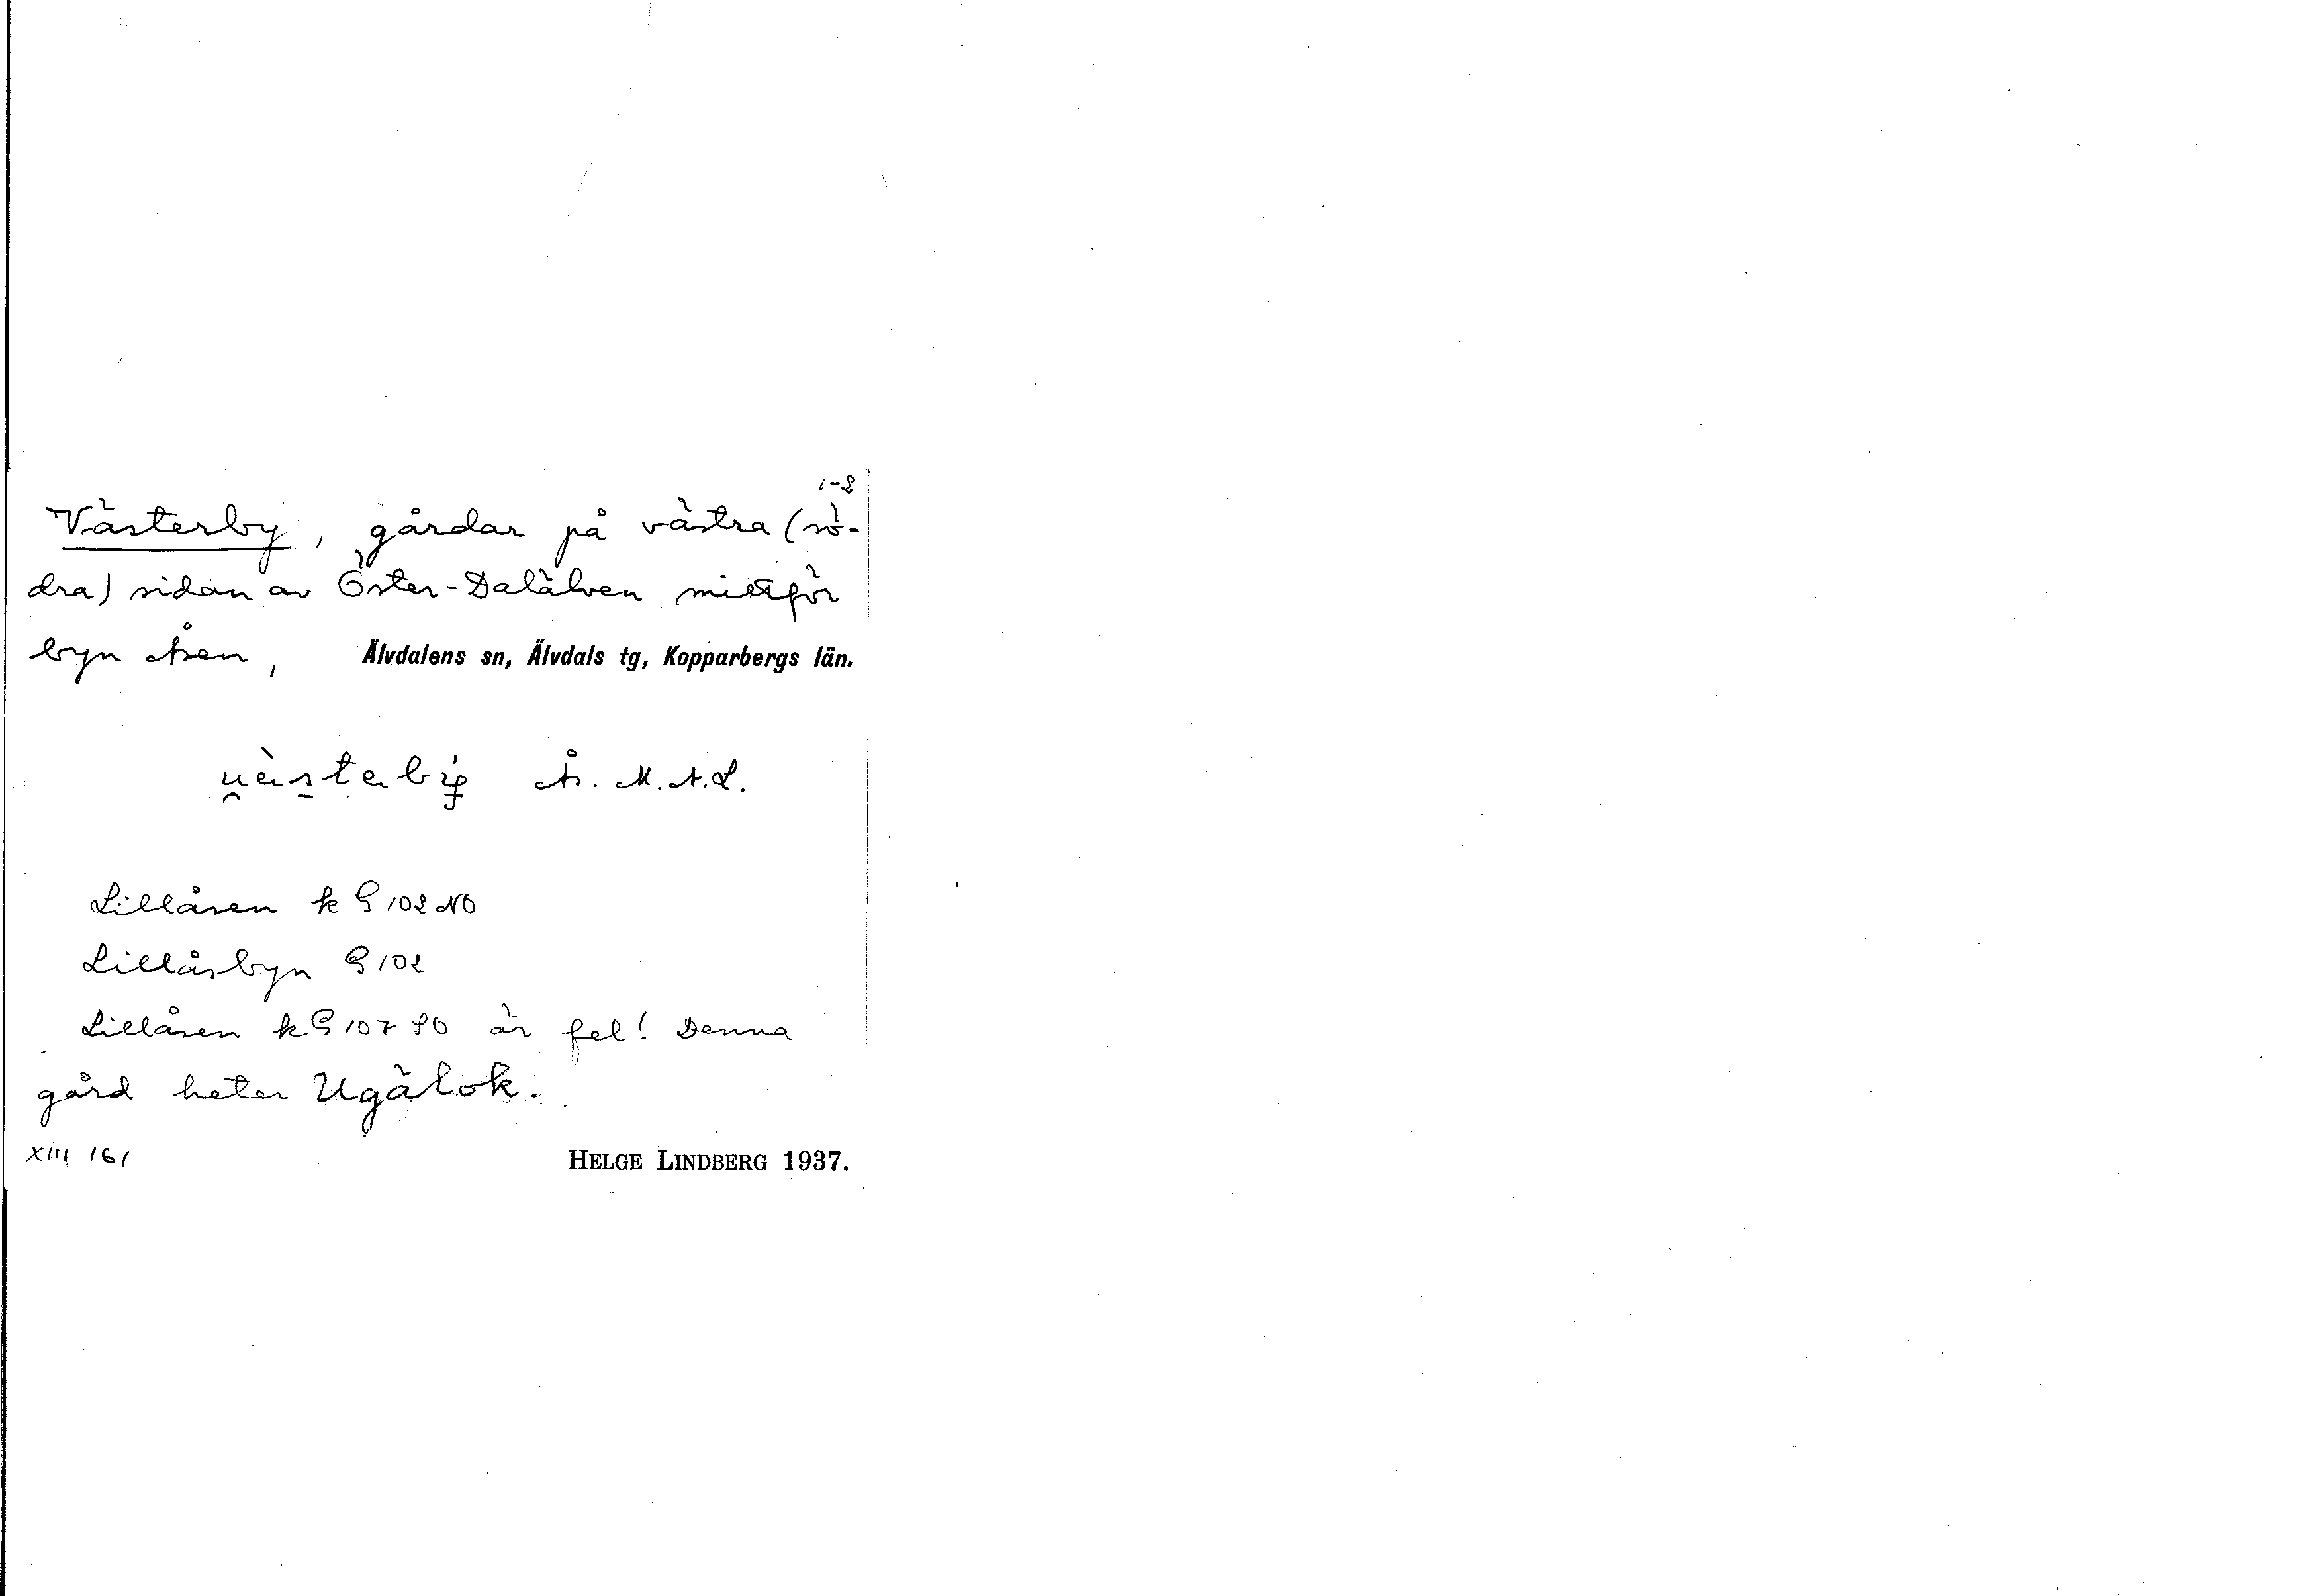 1-2
Västerby, gårdar på västra (sö-
dra) sidan av Öster-Dalälven mittför
byn Åsen, Älvdalens sn, Älvdals tg, Kopparbergs län.
Ås. M.A.L.
Lillåsen k G 102 NO
Lillåsbyn G 102
Lillåsen k G 107 SO är fel! Denna
gård heter Ugälok.
XIII 161 HELGE LINDBERG 1937.